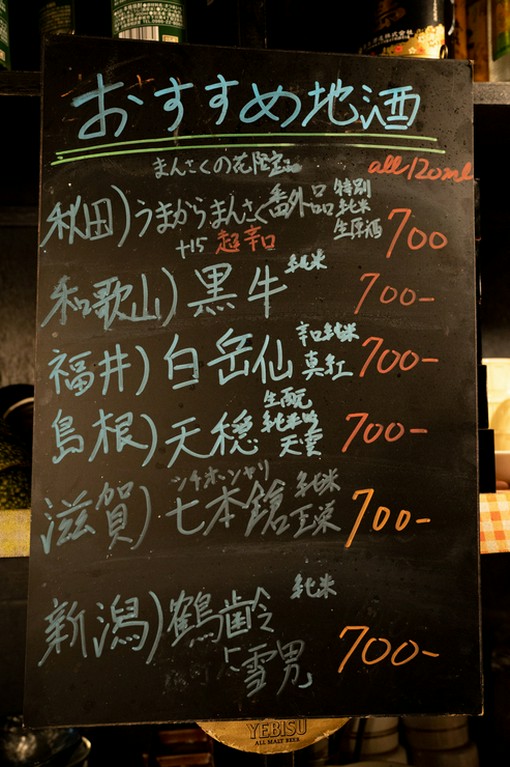 おすすめ地酒
まんさくの花限定
all 120ml
秋田)うまからまんさく番外品 特別純米生原酒 700
+15 超辛口
和歌山)黒牛 純米 700-
福井)白岳仙 辛口純米 真紅 700-
島根)天穏 生酛 純米吟 天雲 700-
シチホンヤリ
滋賀)七本鎗 純米 玉栄 700-
新潟)鶴齢 純米 700-
雪男
YEBISU
ALL MALT BEER